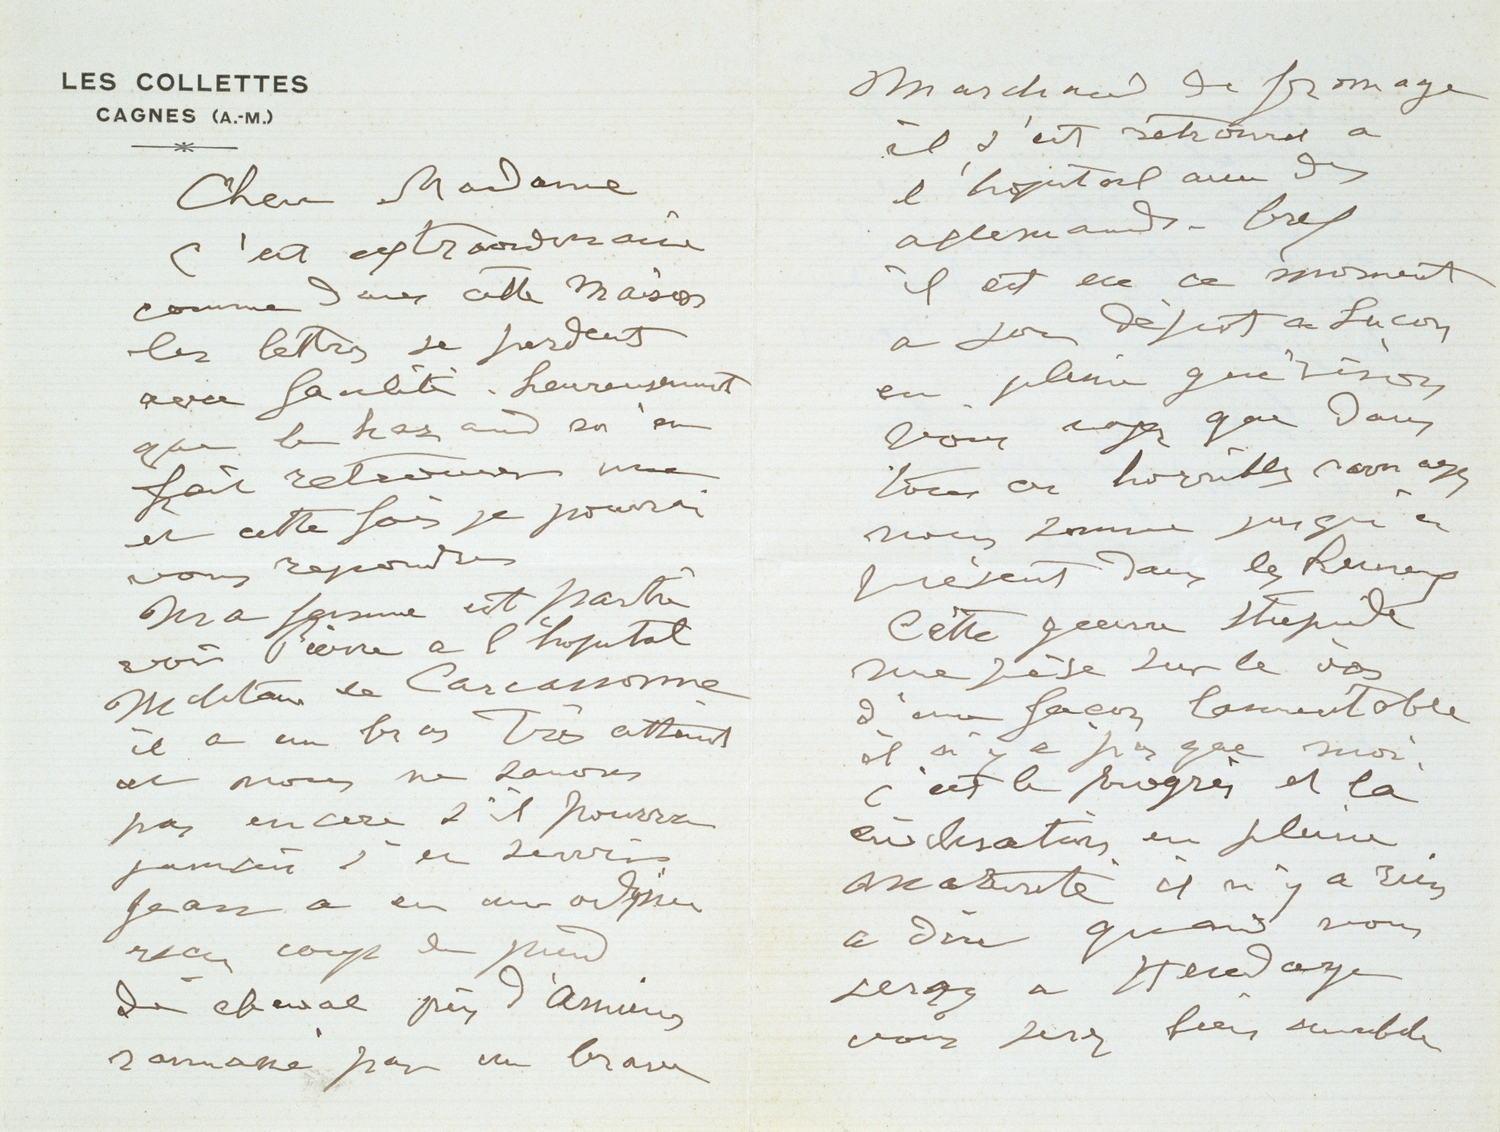 LES COLLETTES
CAGNES (A.-M.)
Chere Madame
c'est extraordinaire
comme dans cette maison
les lettres se perdent
avec facilité. heureusement
que le hazard m'en
fait retrouver une
et cette fois je pourrai
vous repondre
Ma femme est partie
voir Pierre a l'hopital
Militaire de Carcassonne
il a un bras très atteint
et nous ne savons
pas encore s'il pourra
jamais s'en servir
Jean a eu un
recu coup de pied
de cheval près d'Amiens
ramassé par un brave
Marchand de fromage
il s'est retrouvé a
l'hopital avec des
allemands - bref
il est en ce moment
a son dépot a Lucon
en pleine guérison
vous voyez que dans
tous ces horribles
nous sommes jusqu'à
présent dans les
Cette guerre stupide
me pèse sur le dos
d'une facon lamentable
il n'y a pas que moi.
c'est le progrès et la
civilisation en pleine
maturité il n'y a rien
a dire quand vous
serez a Hendaye
vous serez bien aimable